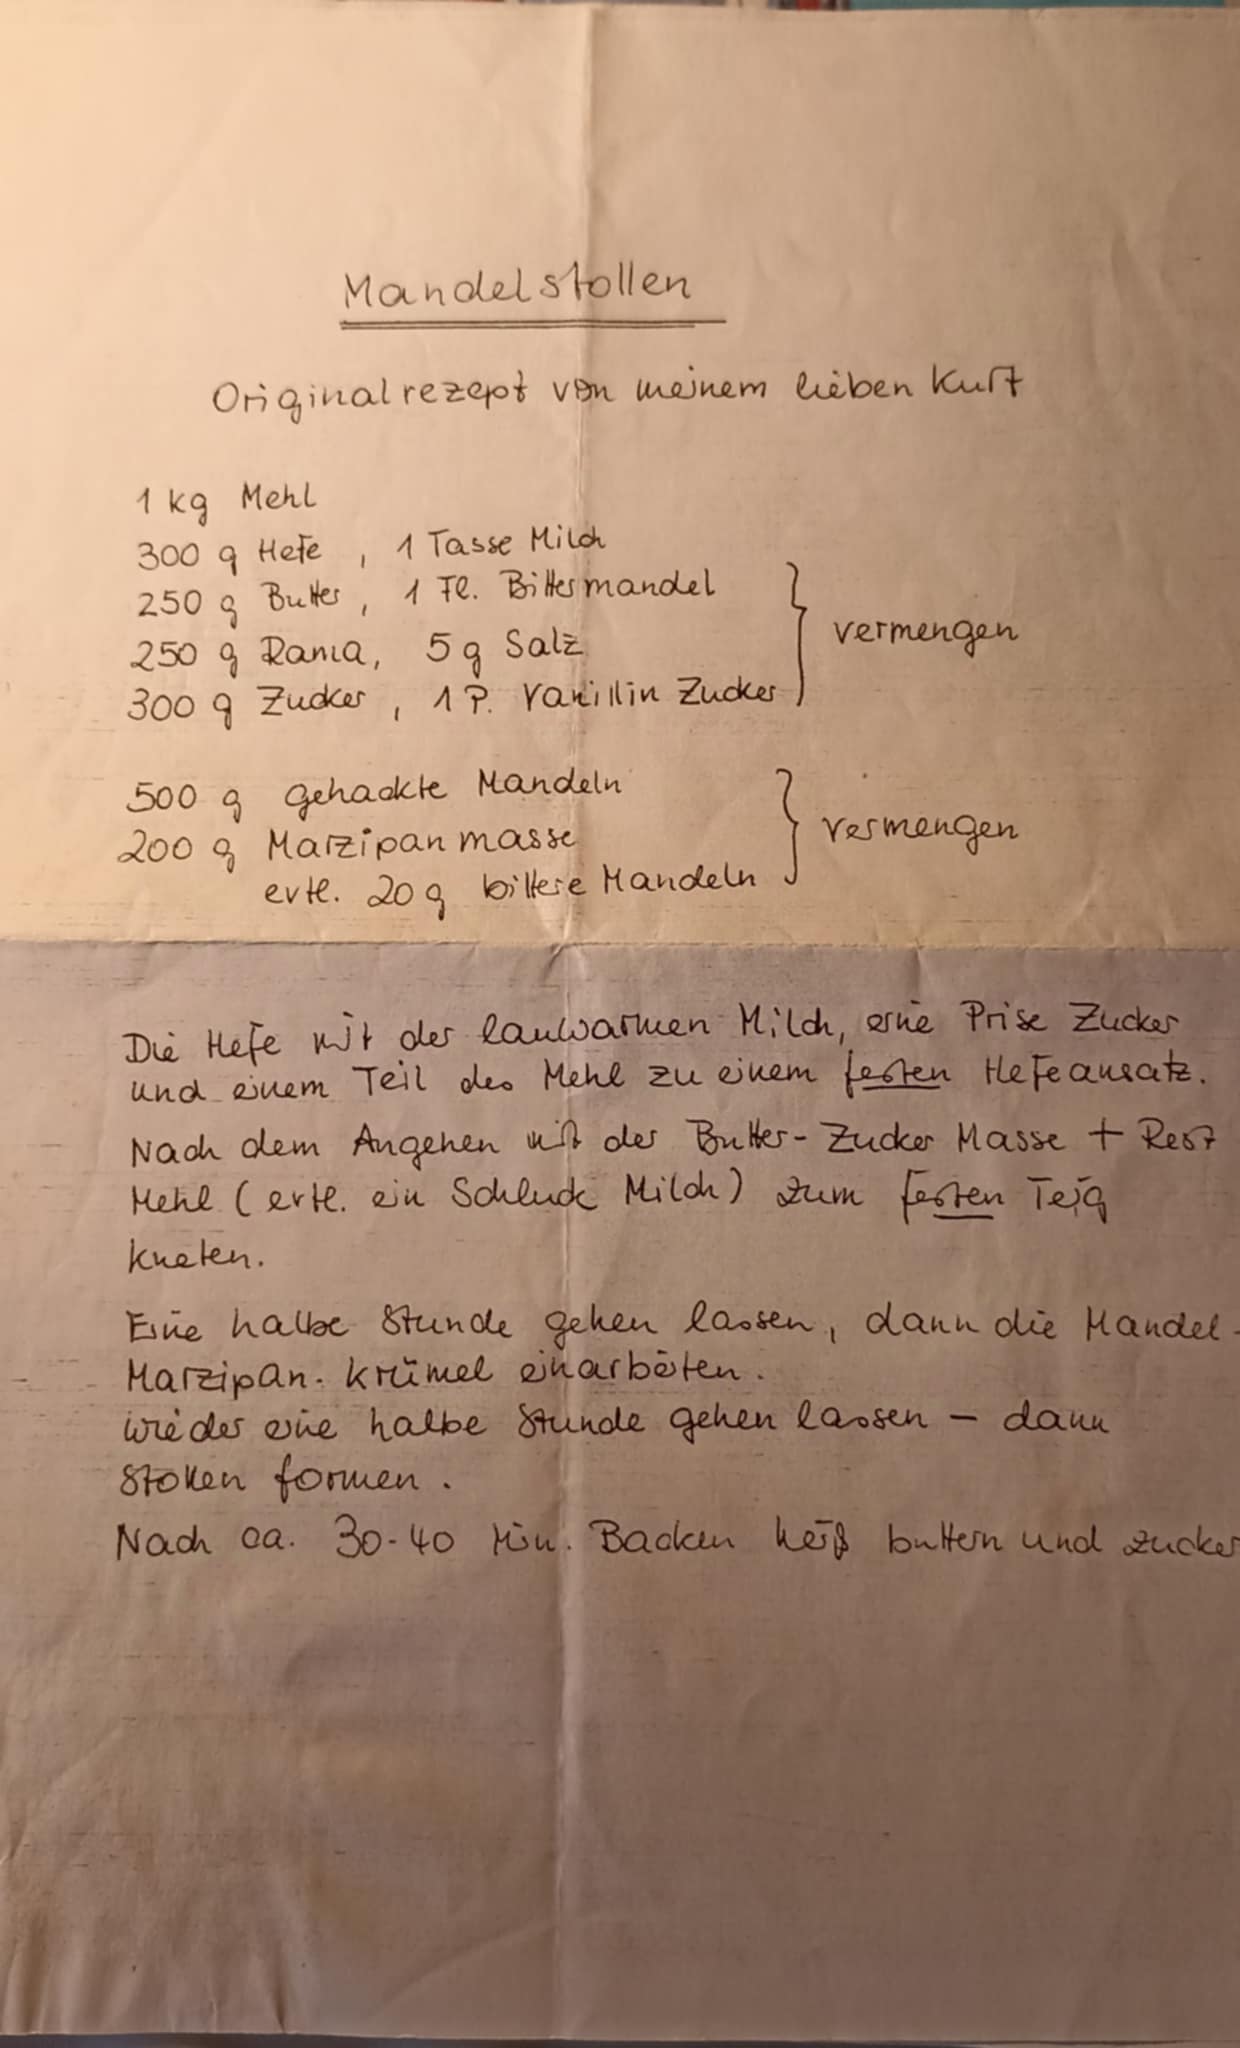 Mandelstollen
Originalrezept von meinem lieben Kurt
1 kg Mehl
300 g Hefe , 1 Tasse Milch
250 g Butter , 1 Fl. Bittermandel
250 g Rama, 5 g Salz
300 g Zucker , 1 P. Vanillin Zucker
vermengen
500 g gehackte Mandeln
200 g Marzipanmasse
evtl. 20 g bittere Mandeln
vermengen
Die Hefe mit der lauwarmen Milch, eine Prise Zucker
und einem Teil des Mehl zu einem festen Hefeansatz.
Nach dem Angehen mit der Butter-Zucker Masse + Rest
Mehl (evtl. ein Schluck Milch) zum festen Teig
kneten.
Eine halbe Stunde gehen lassen, dann die Mandel-
Marzipan-krümel einarbeiten.
wieder eine halbe Stunde gehen lassen – dann
Stollen formen.
Nach ca. 30-40 Min. Backen heiß buttern und zucker